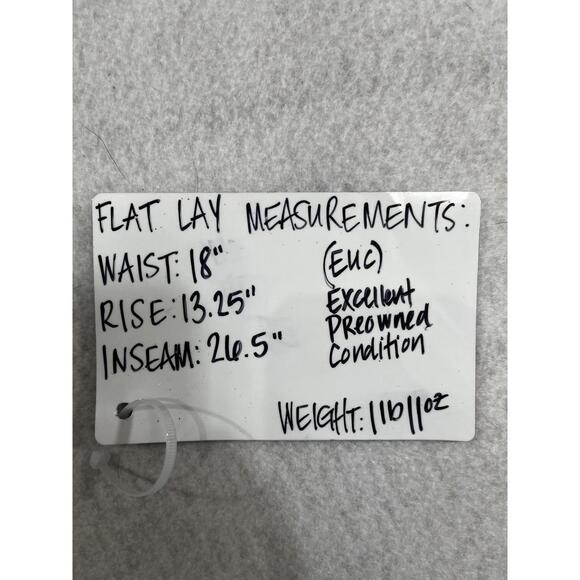 FLAT LAY MEASUREMENTS:
WAIST: 18"
(EUC)
RISE: 13.25"
Excellent
Preowned
INSEAM: 26.5"
Condition
WEIGHT: 1lb11oz